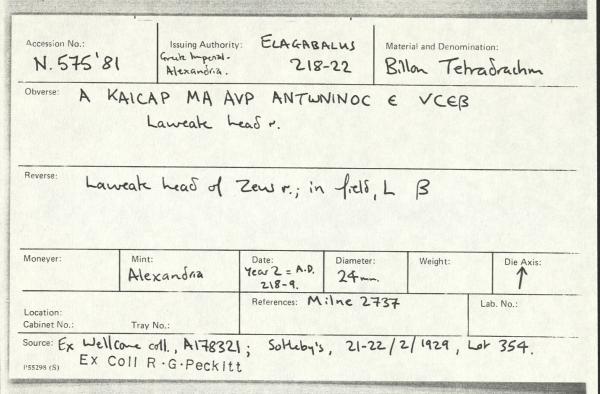 Accession No.: N.575'81
Issuing Authority: ELAGABALUS
Greek Imperial-
Alexandria. 218-22
Material and Denomination:
Billon Tetradrachm
Obverse: A KAICAP MA AVP ANTWNINOC Є VCЄB
Laureate head r.
Reverse: Laureate head of Zeus r.; in field, L B
Moneyer:
Mint: Alexandria
Date: Year 2 = A.D.
218-9.
Diameter: 24mm.
Weight:
Die Axis: ↑
Location:
Cabinet No.: Tray No.:
References: Milne 2737
Lab. No.:
Source: Ex Wellcome coll., A178321; Sotheby's, 21-22/2/1929, Lot 354.
Ex Coll R.G.Peckitt
P55298 (S)